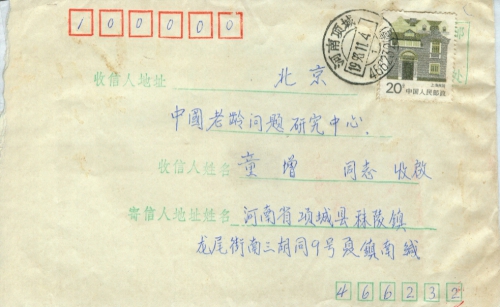 100000
河南项城
1993.11.4
466232
收信人地址 北京
20分 中国人民邮政
中國老龄问题研究中心.
收信人姓名 童增 同志 收啟
寄信人地址姓名 河南省项城县秣陵镇
龙尾街南三胡同9号 夏镇南缄
466232